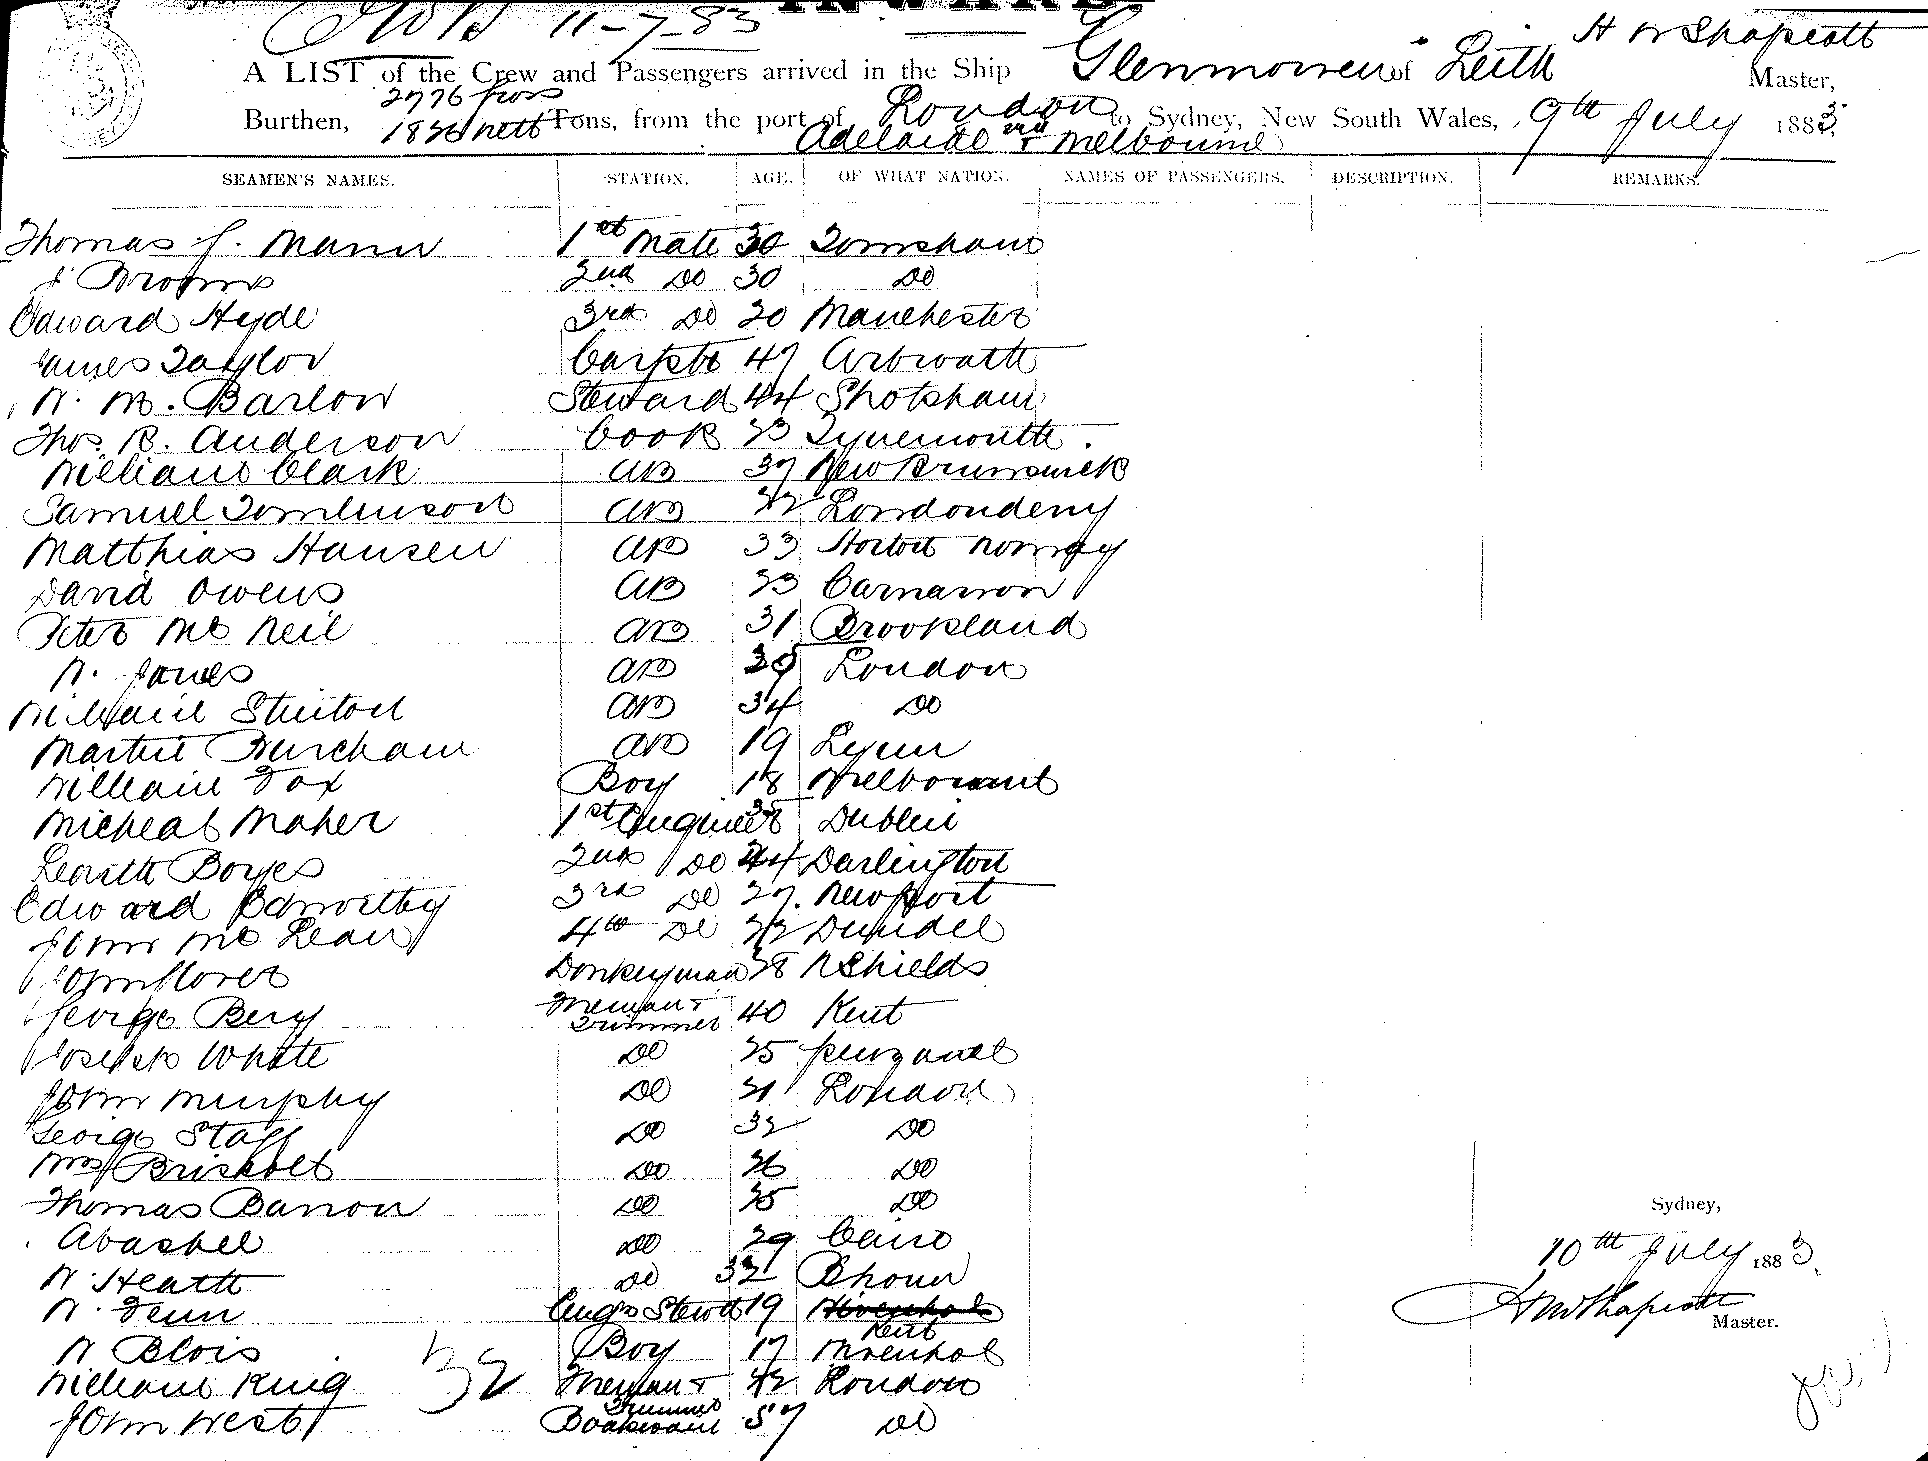 INWARD
11-7-83
H W Shapcott
A LIST of the Crew and Passengers arrived in the Ship Glenmorven of Leith Master,
2776 gross
Burthen, 1826 nett Tons, from the port of London to Sydney, New South Wales, 9th July 1883,
Adelaide and Melbourne
SEAMEN'S NAMES. STATION. AGE. OF WHAT NATION. NAMES OF PASSENGERS. DESCRIPTION. REMARKS.
Thomas J. Mann 1st Mate 30
2nd Do 30 Do
Edward Hyde 3rd Do 20 Manchester
James Taylor Carptr 47 Arbroath
W. M. Barlow Steward 44 Shotsham
Thos. R. Anderson Cook 23 Tynemouth.
William Clark AB 37 New Brunswick
Samuel Tomlinson AB Londonderry
Matthias Hansen AB 33 Norway
David Owens AB 23 Carnarvon
Peter Mc Neil AB 31 Brookland
W. Jones AB London
William Stinton AB 34 Do
Martin AB 19 Lynn
William Fox Boy 18 Melbourne
Micheal Maher 1st Engineer Dublin
2nd Do Darlington
Edward Edworthy 3rd Do 27. Newport
John Mc Lean 4th Do Dundee
John Donkeyman 38 N Shields
George Bery Fireman & 40 Kent
Trimmer
Joseph White Do 25 Penzance
John Murphy Do 21 London
George Staff Do 32 Do
Do 26 Do
Thomas Barron Do 25 Do
Do 29 Cairo
W. Heath Do 32
W. Fenn Engrs Stewd 19
Kent
W Blois Boy 17
William King Fireman & 42 London
Trimmer
John West Boatswain 57 Do
32
Sydney,
10th July 1883.
H W Shapcott
Master.